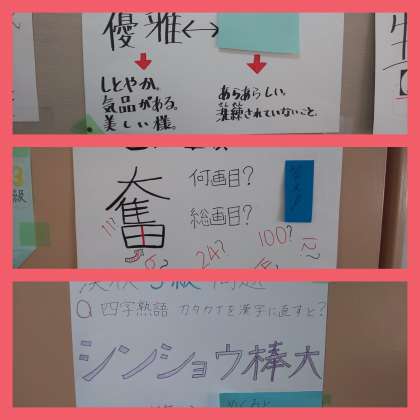 優雅↔
しとやか。
気品がある。
美しい様。
あらあらしい。
洗練されていないこと。
級
奮
何画目?
総画目?
11?
6?
24?
100?
12?
Q 四字熟語 カタカナを漢字に直すと?
シンショウ棒大
めくると